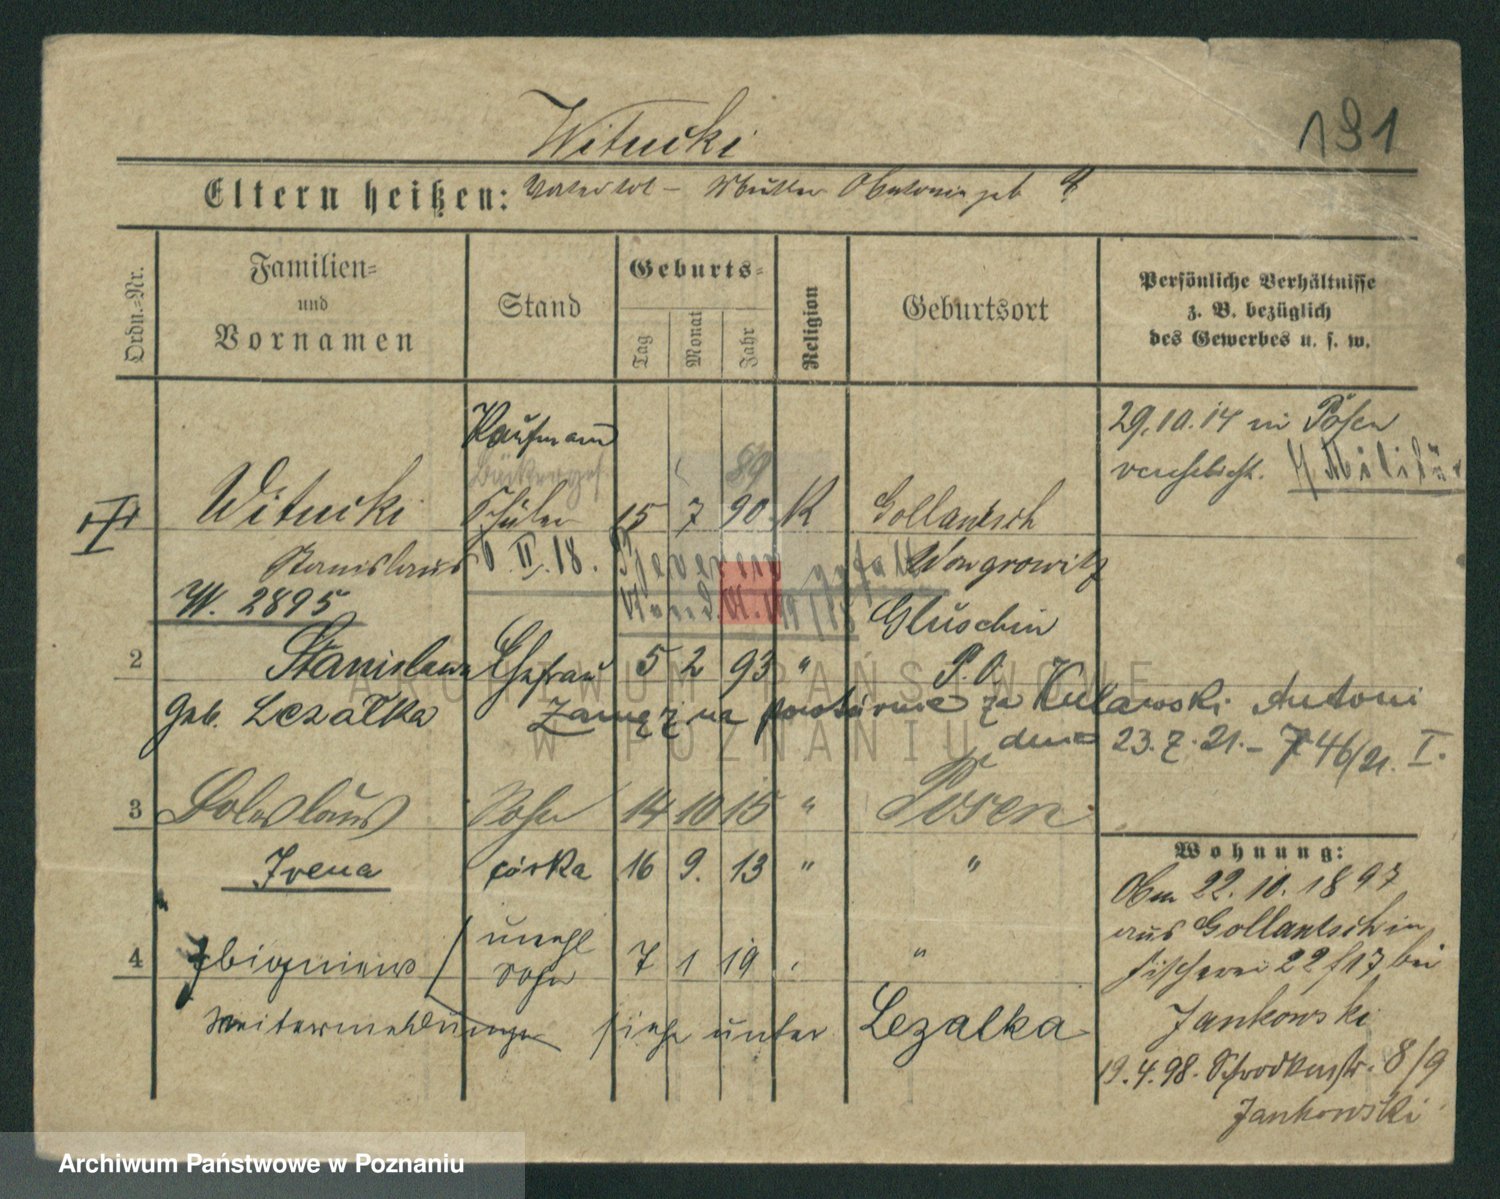 Witucki
191
Eltern heißen: Vater tot - Mutter geb ?
Ordn.=Nr.
Familien=
und
Vornamen
Stand
Geburts=
Tag
Monat
Jahr
Religion
Geburtsort
Persönliche Verhältnisse
z. B. bezüglich
des Gewerbes u. s. w.
Kaufmann
29.10.14 in Posen
verehelicht. Militär
89
Witucki Schüler 15 7 90 K Gollantsch
Stanislaus II. 18. Wongrowitz
W. 2895
Gluschin
2 Stanislawa Ehefrau 5 2 93 " P.O.
geb. Lezatka Zamęzna za Kulawski Antoni
dnia 23.7.21. - 746/21. I.
3 Boleslaus Sohn 14 10 15 " Posen
Irena córka 16 9. 13 " "
Wohnung:
22.10.1897
aus Gollantsch in
Fischerei 22 bei
Jankowski
19.4.98. Schrodkaerstr. 8/9
Jankowski
4 Zbigniew unehl
Sohn 7 1 19 "
Weitermeldungen siehe unter Lezalka
ARCHIWUM PAŃSTWOWE
W POZNANIU
Archiwum Państwowe w Poznaniu